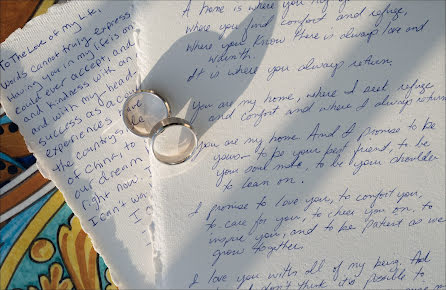 To The Love of My Life,
words cannot truly express
having you in my life is
could ever accept, and
and kindness with an
and with my
success as a
experiences
the countries
of
our dream
right now, I
I can't wa
I
A home is where you
where you find comfort and refuge,
where you know there is always love and
warmth.
It is where you always return.
You are my home, where I seek refuge
and comfort and where I always return
You are my home. And I promise to be
yours - to be your best friend, to be
your soul mate, to be your shoulder
to lean on.
I promise to love you, to comfort you,
to care for you, to cheer you on, to
inspire you, and to be patient as we
grow together.
I love you with all of my being. And
I don't think it's possible to